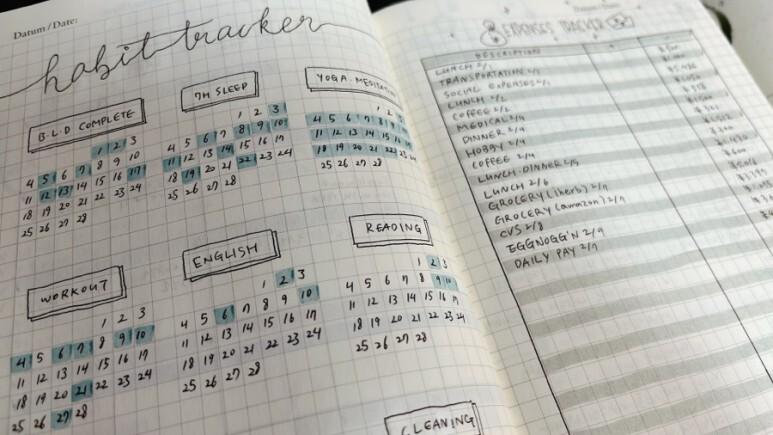 Datum / Date:
habit tracker
B.L.D COMPLETE
1 2 3
4 5 6 7 8 9 10
11 12 13 14 15 16 17
18 19 20 21 22 23 24
25 26 27 28
7H SLEEP
1 2 3
4 5 6 7 8 9 10
11 12 13 14 15 16 17
18 19 20 21 22 23 24
25 26 27 28
YOGA・MEDITATION
1 2
4 5 6 7 8 9
11 12 13 14 15 16
18 19 20 21 22 23 24
25 26 27 28
WORKOUT
1 2 3
4 5 6 7 8 9 10
11 12 13 14 15 16 17
18 19 20 21 22 23 24
25 26 27 28
ENGLISH
1 2 3
4 5 6 7 8 9 10
11 12 13 14 15 16 17
18 19 20 21 22 23 24
25 26 27 28
READING
1 2 3
4 5 6 7 8 9 10
11 12 13 14 15 16 17
18 19 20 21 22 23 24
25 26 27 28
CLEANING
EXPENSES TRACKER
DESCRIPTION
LUNCH 2/1
TRANSPORTATION 2/1
SOCIAL EXPENSES 2/1
LUNCH 2/2
COFFEE 2/2
MEDICAL 2/2
DINNER 2/4
HOBBY 2/4
COFFEE 2/4
LUNCH・DINNER 2/5
LUNCH 2/6
GROCERY (iherb) 2/7
GROCERY (amazon) 2/7
CVS 2/8
EGGNOGG'N 2/9
DAILY PAY 2/9